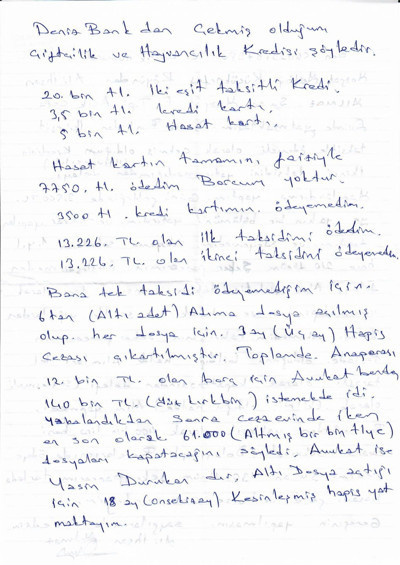 Deniz Bank dan Çekmiş olduğum
Çiftçilik ve Hayvancılık Kredisi şöyledir.
20. bin tl. İki eşit taksitli Kredi.
3,5 bin tl. kredi kartı.
5 bin tl. Hasat kartı.
Hasat kartın tamamını, faiziyle
7750. tl. ödedim Borcum yoktur.
3500 tl. kredi kartımın ödeyemedim.
13.226. TL. olan ilk taksidimi ödedim.
13.226. TL. olan ikinci taksidini ödeyemedim.
Bana tek taksidi ödeyemediğim için.
6 tan (Altı adet) Adıma dosya açılmış
olup. her dosya için. 3 ay (Üç ay) Hapis
Cezası çıkartılmıştır. Toplamda. Anaparası
12. bin TL. olan borç için Avukat benden
140 bin TL. (yüz kırk bin) istemekte idi.
Yakalandıkdan sonra cezaevinde iken
en son olarak 61.000 (Altmış bir bin tl ye)
dosyaları kapatacağını söyledi, Avukat ise
Yasin Durukan dır, Altı Dosya açtığı
için 18 ay (onsekiz ay) Kesinleşmiş hapis yat
maktayım.